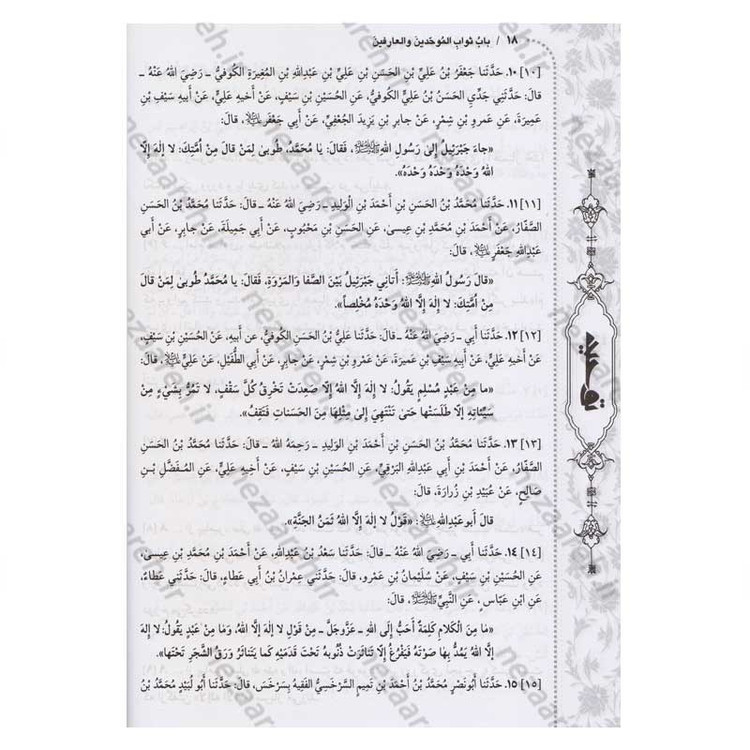 ۱۸ / بابُ ثوابِ المُوحّدينَ والعارِفينَ
[۱۰] ۱۰. حَدَّثَنا جَعْفَرُ بْنُ عَلِيِّ بْنِ الحَسَنِ بْنِ عَلِيِّ بْنِ عَبدِاللهِ بْنِ المُغِيرَةِ الكُوفِيُّ ـ رَضِيَ اللهُ عَنْهُ ـ
قالَ: حَدَّثَنِي جَدِّي الحَسَنُ بْنُ عَلِيٍّ الكُوفِيُّ، عَنِ الحُسَيْنِ بْنِ سَيْفٍ، عَنْ أخيهِ عَلِيٍّ، عَنْ أبيهِ سَيْفِ بْنِ
عَمِيرَةَ، عَن عَمرِو بْنِ شِمْرٍ، عَن جابِرِ بْنِ يَزِيدَ الجُعْفِيِّ، عَن أَبِي جَعْفَرٍ، قالَ:
«جاءَ جَبْرَئِيلُ إلىٰ رَسُولِ اللهِ، فَقالَ: يا مُحَمَّدُ، طُوبىٰ لِمَنْ قالَ مِنْ أُمَّتِكَ: لا إلٰهَ إلَّا
اللهُ وَحْدَهُ وَحْدَهُ وَحْدَهُ».
[۱۱] ۱۱. حَدَّثَنا مُحَمَّدُ بْنُ الحَسَنِ بْنِ أَحْمَدَ بْنِ الوَلِيدِ ـ رَضِيَ اللهُ عَنْهُ ـ قالَ: حَدَّثَنا مُحَمَّدُ بْنُ الحَسَنِ
الصَّفّارُ، عَنْ أَحْمَدَ بْنِ مُحَمَّدِ بْنِ عِيسىٰ، عَنِ الحَسَنِ بْنِ مَحْبُوبٍ، عَنْ أَبِي جَمِيلَةَ، عَنْ جابِرٍ، عَنْ أَبي
عَبدِاللهِ جَعْفَرٍ، قالَ:
«قالَ رَسُولُ اللهِ: أَتاني جَبْرَئِيلُ بَيْنَ الصَّفا وَالمَرْوَةِ، فَقالَ: يا مُحَمَّدُ طُوبىٰ لِمَنْ قالَ
مِنْ أُمَّتِكَ: لا إلٰهَ إلَّا اللهُ وَحْدَهُ مُخْلِصاً».
[۱۲] ۱۲. حَدَّثَنا أَبي ـ رَضِيَ اللهُ عَنْهُ ـ قالَ: حَدَّثَنا عَلِيُّ بْنُ الحَسَنِ الكُوفِيُّ، عَن أَبيهِ، عَنْ الحُسَيْنِ بْنِ سَيْفٍ،
عَنْ أَخيهِ عَلِيٍّ، عَنْ أَبِيهِ سَيْفِ بْنِ عَمِيرَةَ، عَنْ عَمْرِو بْنِ شِمْرٍ، عَنْ جابِرٍ، عَنْ أَبِي الطُّفَيْلِ، عَنْ عَلِيٍّ، قالَ:
«ما مِنْ عَبْدٍ مُسْلِمٍ يَقُولُ: لا إلٰهَ إلَّا اللهُ إلّا صَعِدَتْ تَخْرِقُ كُلَّ سَقْفٍ، لا تَمُرُّ بِشَيْءٍ مِنْ
سَيِّئاتِهِ إلّا طَلَسَتْها حَتىٰ تَنْتَهِيَ إلىٰ مِثْلِها مِنَ الحَسَناتِ فَتَقِفُ».
[۱۳] ۱۳. حَدَّثَنا مُحَمَّدُ بْنُ الحَسَنِ بْنِ أَحْمَدَ بْنِ الوَلِيدِ ـ رَحِمَهُ اللهُ ـ قالَ: حَدَّثَنا مُحَمَّدُ بْنُ الحَسَنِ
الصَّفّارُ، عَنْ أَحْمَدَ بْنِ أَبي عَبدِاللهِ البَرْقِيِّ، عَنِ الحُسَيْنِ بْنِ سَيْفٍ، عَنْ أَخِيهِ عَلِيٍّ، عَنِ المُفَضَّلِ بْنِ
صالِحٍ، عَنْ عُبَيْدِ بْنِ زُرارَةَ، قالَ:
قالَ أَبو عَبدِاللهِ: «قَوْلُ لا إلٰهَ إلَّا اللهُ ثَمَنُ الجَنَّةِ».
[۱۴] ۱۴. حَدَّثَنا أَبي ـ رَضِيَ اللهُ عَنْهُ ـ قالَ: حَدَّثَنا سَعْدُ بْنُ عَبْدِاللهِ، عَنْ أَحْمَدَ بْنِ مُحَمَّدِ بْنِ عِيسىٰ،
عَنِ الحُسَيْنِ بْنِ سَيْفٍ، عَنْ سُلَيْمانَ بْنِ عَمْرٍو، قالَ: حَدَّثَنِي عِمْرانُ بْنُ أَبِي عَطاءٍ، قالَ: حَدَّثَنِي عَطاءٌ،
عَنِ ابْنِ عَبّاسٍ، عَنِ النَّبِيِّ، قالَ:
«مَا مِنَ الكَلامِ كَلِمَةٌ أَحَبُّ إِلَى اللهِ ـ عَزَّوجَلَّ ـ مِنْ قَوْلِ لا إلٰهَ إلَّا اللهُ، وَمَا مِنْ عَبْدٍ يَقُولُ: لا إلٰهَ
إلَّا اللهُ يَمُدُّ بِهَا صَوْتَهُ فَيَفْرُغُ إلّا تَناثَرَتْ ذُنُوبُهُ تَحْتَ قَدَمَيْهِ كَما يَتَناثَرُ وَرَقُ الشَّجَرِ تَحْتَها».
[۱۵] ۱۵. حَدَّثَنا أَبُونَصْرٍ مُحَمَّدُ بْنُ أَحْمَدَ بْنِ تَمِيمٍ السَّرْخَسِيُّ الفَقِيهُ بِسَرْخَسَ، قالَ: حَدَّثَنا أَبُو لُبَيْدٍ مُحَمَّدُ بْنُ
توحید
nezaareh.ir